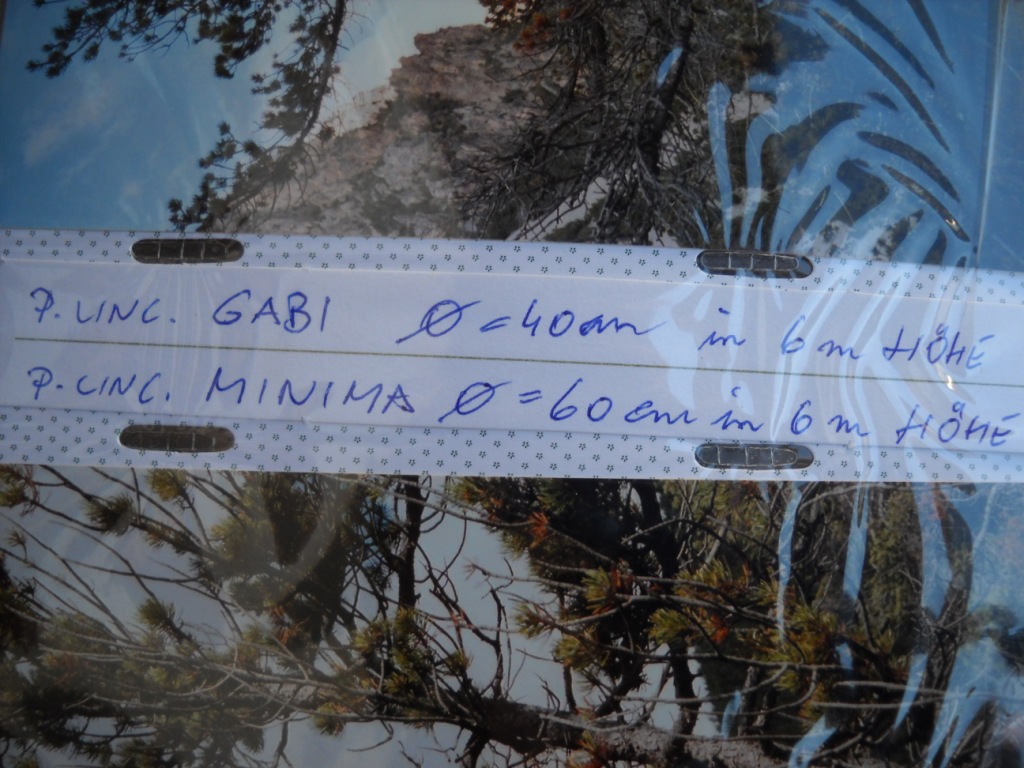 P. UNC. GABI Ø = 40cm in 6 m HÖHE
P. UNC. MINIMA Ø = 60 cm in 6 m HÖHE